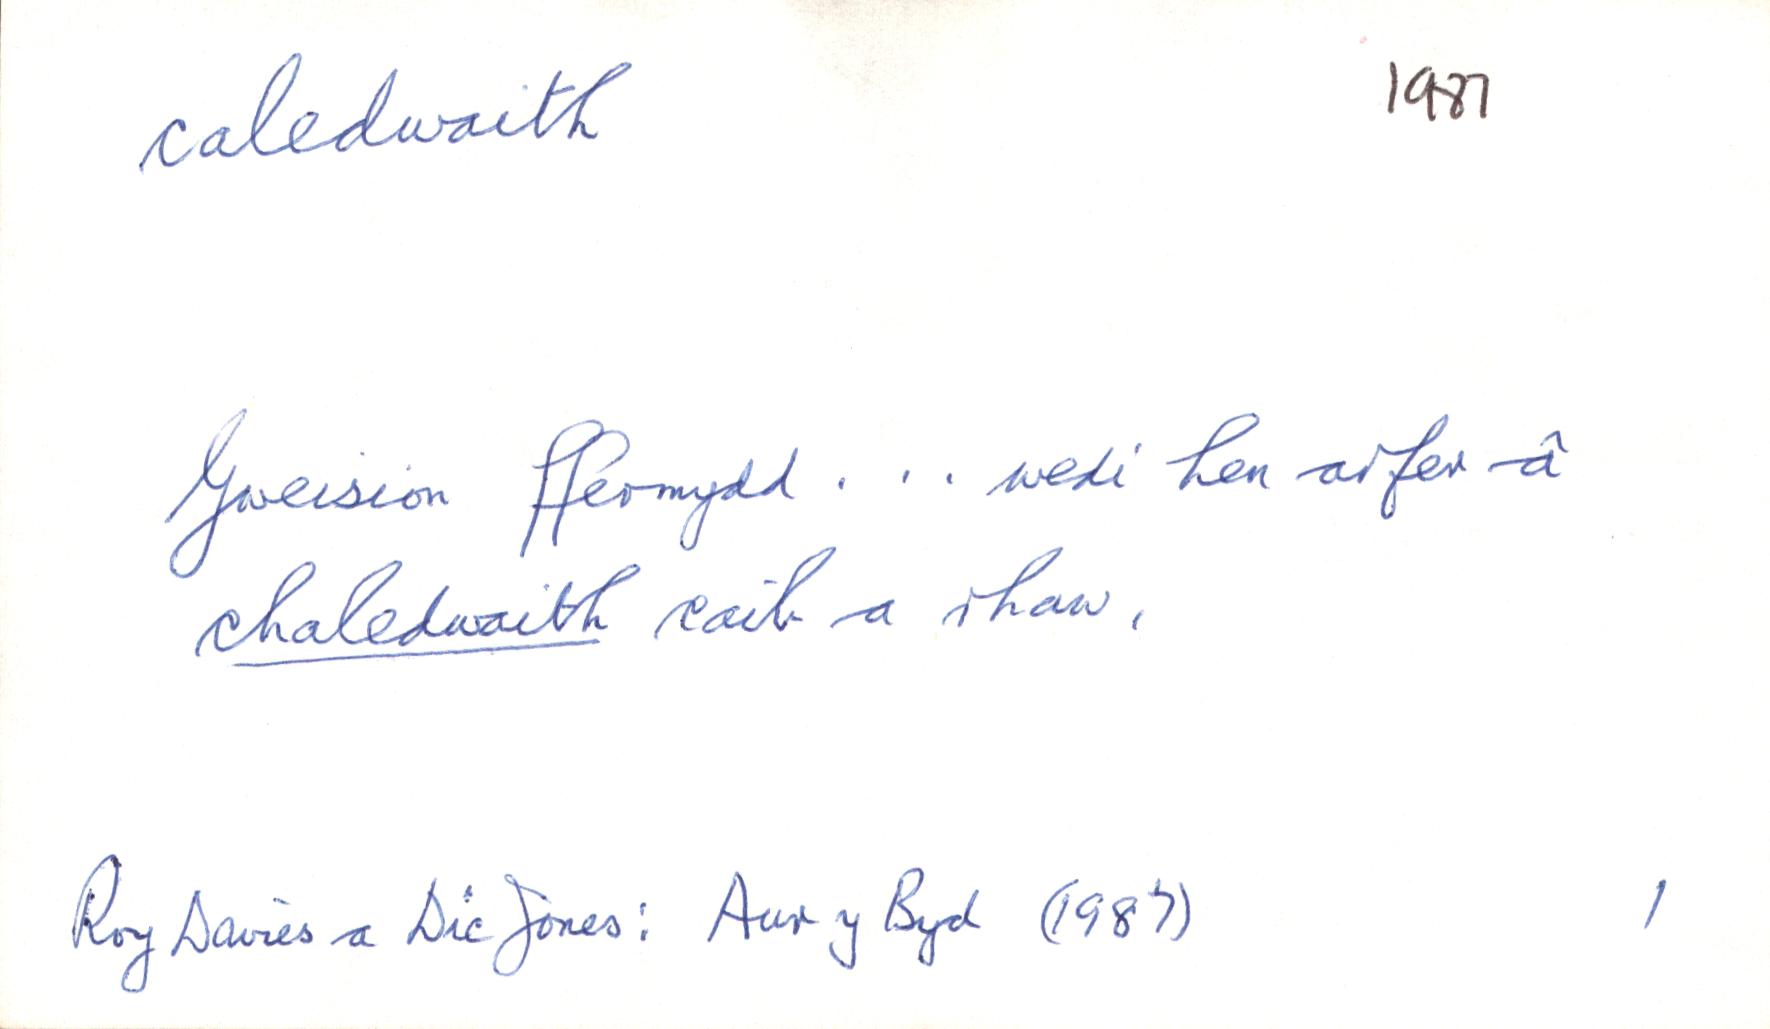 caledwaith 1987
Gweision ffermydd . . . wedi hen arfer â
chaledwaith caib a rhaw.
Roy Davies a Dic Jones: Aur y Byd (1987) 1